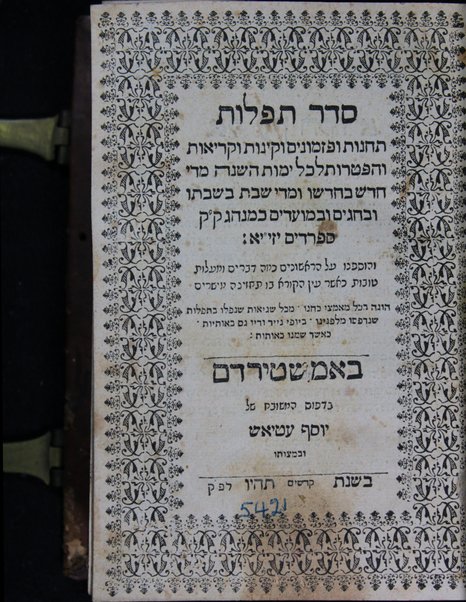 סדר תפלות
תחנות ופזמונים וקינות וקריאות
והפטרות לכל ימות השנה מדי
חדש בחדשו ומדי שבת בשבתו
ובחגים ובמועדים כמנהג ק״ק
ספרדים יזי״א :
והוספנו על הראשונים כמה דברים ומעלות
טובות כאשר עין הקורא בו תחזינה מישרים
הוגה בכל מאמצי כחנו · מכל שגיאות שנפלו בתפלות
שנדפסו מלפנינו · ביופי נייר ודיו גם באותיות ·
כאשר שמנו באותות :
באמשטירדם
בדפוס המשובח של
יוסף עטיאש
ובמצותו
בשנת קדשים תהיו לפ״ק
5421